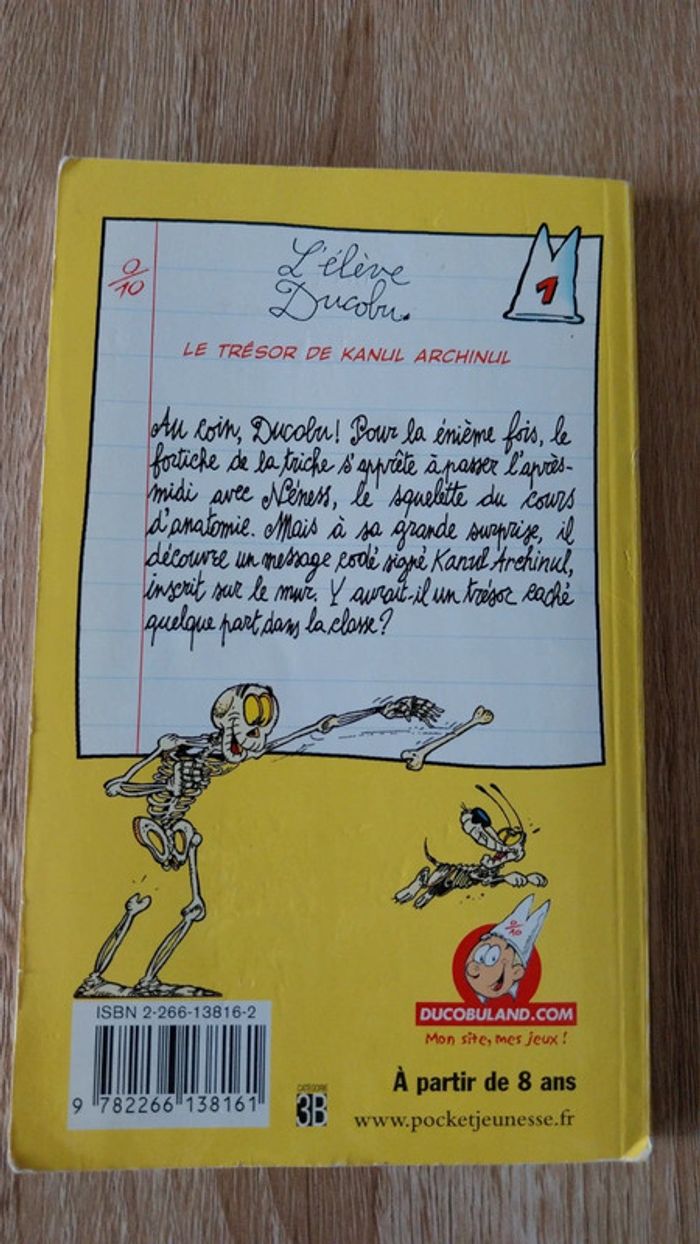 0/10
L'élève
Ducobu.
1
LE TRÉSOR DE KANUL ARCHINUL
Au coin, Ducobu! Pour la énième fois, le
fortiche de la triche s'apprête à passer l'après-
midi avec Néness, le squelette du cours
d'anatomie. Mais à sa grande surprise, il
découvre un message codé signé Kanul Archinul,
inscrit sur le mur. Y aurait-il un trésor caché
quelque part dans la classe?
0/10
DUCOBULAND.COM
Mon site, mes jeux!
ISBN 2-266-13816-2
9 782266 138161
CATÉGORIE
3B
À partir de 8 ans
www.pocketjeunesse.fr